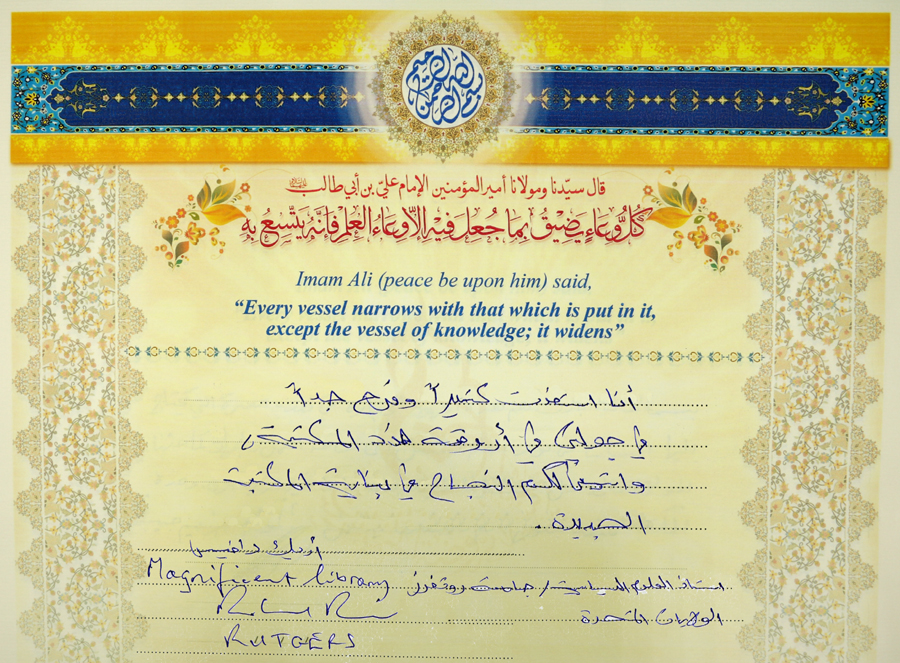 بسم الله الرحمن الرحيم
قال سيّدنا ومولانا أمير المؤمنين الإمام عليّ بن أبي طالب
كُلُّ وِعَاءٍ يَضِيقُ بِمَا جُعِلَ فِيهِ إِلَّا وِعَاءُ الْعِلْمِ فَإِنَّهُ يَتَّسِعُ بِهِ
Imam Ali (peace be upon him) said,
“Every vessel narrows with that which is put in it,
except the vessel of knowledge; it widens”
أنا استفدت كثيراً وفرح جداً
في جولتي في أروقة هذه المكتبة
واتمنا لكم النجاح في بناية المكتبة
الجديدة.
أريك دافيس
استاذ العلوم السياسية / جامعة روتغرز
Magnificent library
الولايات المتحدة
RUTGERS